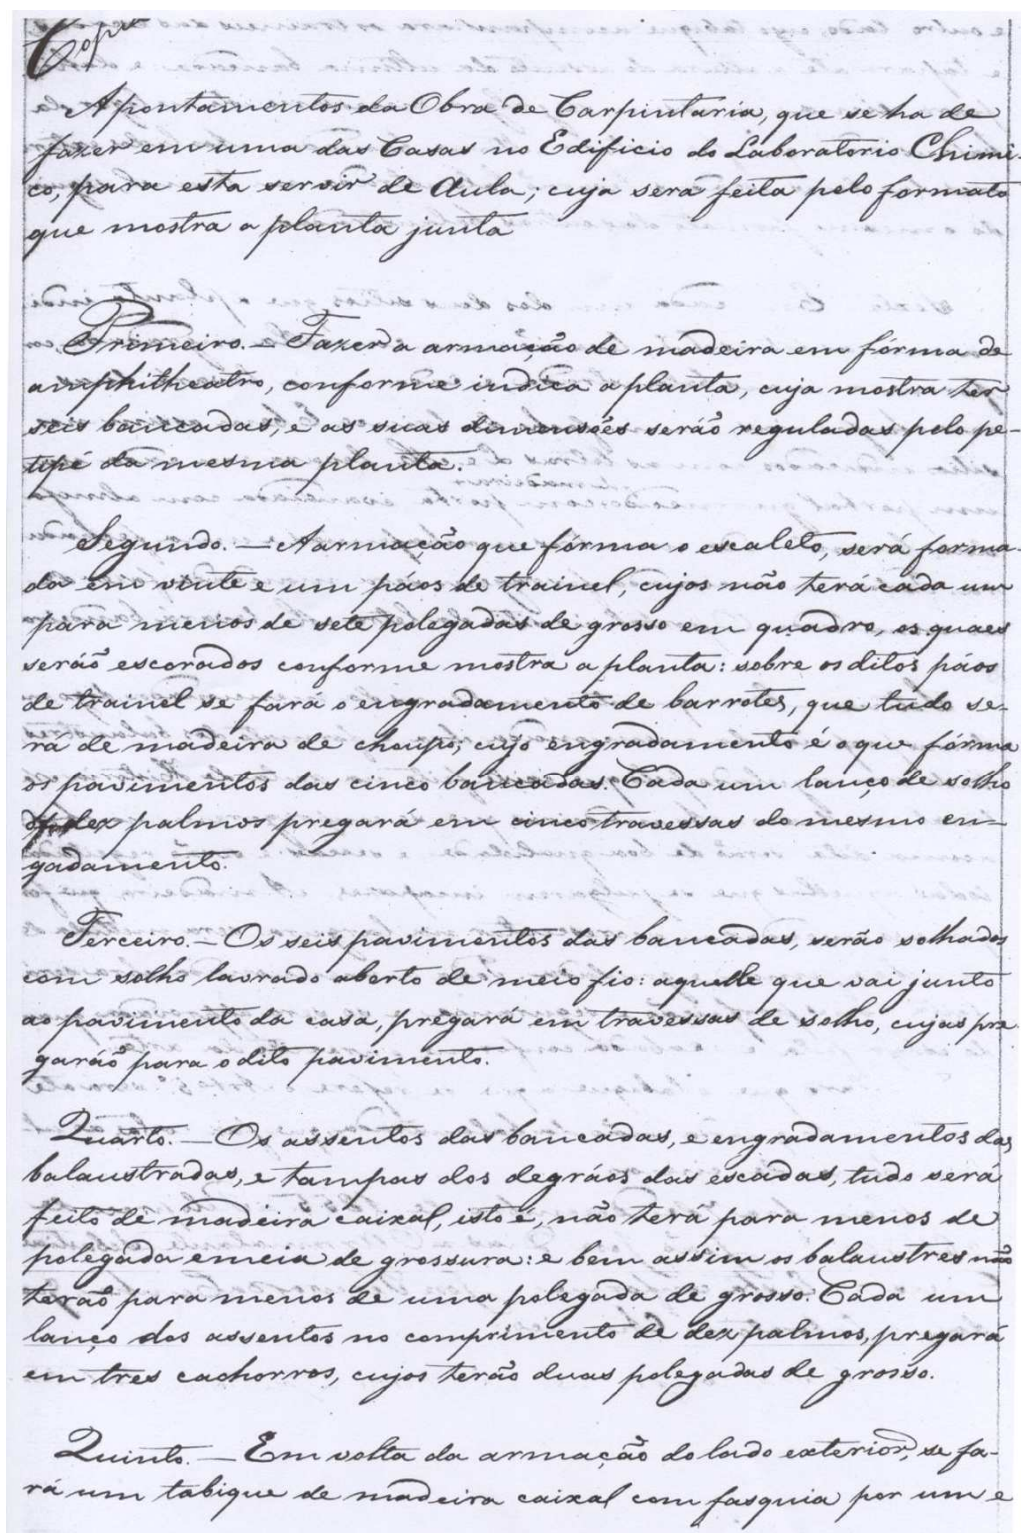 Copia
Apontamentos da Obra de Carpintaria, que se ha de
fazer em uma das Casas no Edificio do Laboratorio Chimi-
co, para esta servir de Aula; cuja será feita pelo formato
que mostra a planta junta
Primeiro. — Fazer a armação de madeira em fórma de
amphitheatro, conforme indica a planta, cuja mostra ter
seis bancadas, e as suas dimensões serão reguladas pelo pe-
tipé da mesma planta.
Segundo. — A armação que fórma o escaleto, será forma-
da em vinte e um páos de trainel, cujos não terá cada um
para menos de sete polegadas de grosso em quadro, os quaes
seráõ escorados conforme mostra a planta: sobre os ditos páos
de trainel se fará o engradamento de barrotes, que tudo se-
rá de madeira de choupo; cujo engradamento é o que fórma
os pavimentos das cinco bancadas. Cada um lanço de solho
dez palmos pregará em cinco travessas do mesmo en-
gadamento.
Terceiro. — Os seis pavimentos das bancadas, serão solhados
com solho lavrado aberto de meio fio: aquelle que vai junto
ao pavimento da casa, pregará em travessas de solho, cujas pre-
garáõ para o dito pavimento.
Quarto. — Os assentos das bancadas, e engradamentos das
balaustradas, e tampas dos degráos das escadas, tudo será
feito de madeira caixal, isto é, não terá para menos de
polegada e meia de grossura: e bem assim os balaustres não
terão para menos de uma polegada de grosso. Cada um
lanço dos assentos no comprimento de dez palmos, pregará
em tres cachorros, cujos terão duas polegadas de grosso.
Quinto. — Em volta da armação do lado exterior, se fa-
rá um tabique de madeira caixal com fasquia por um e